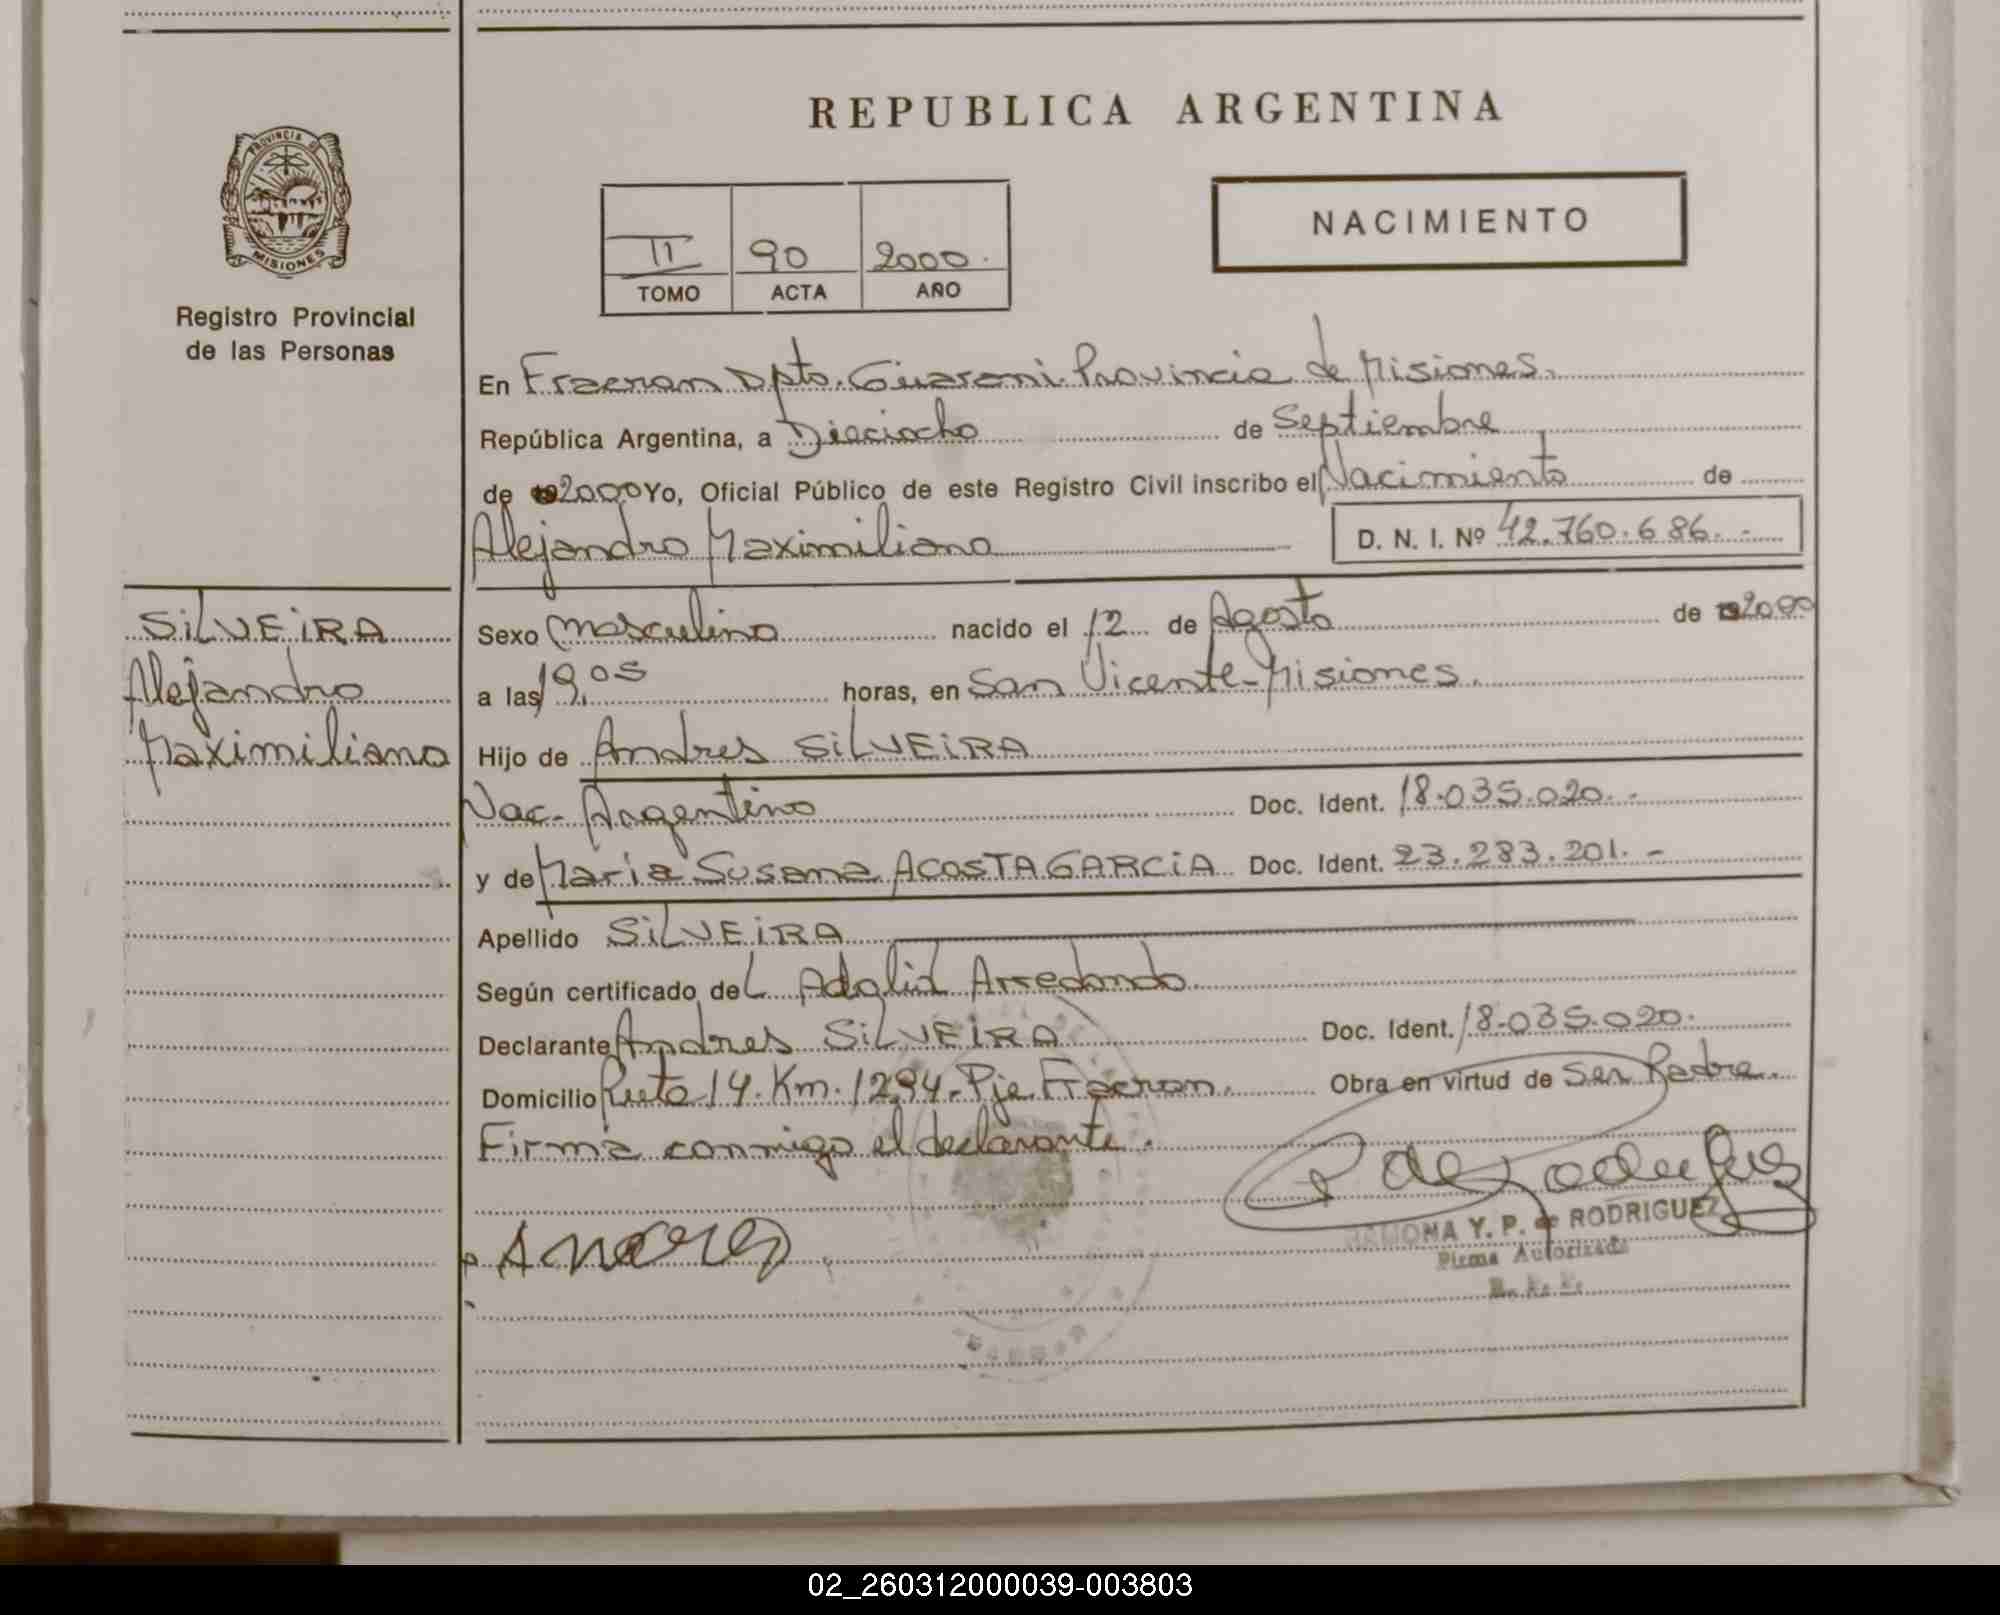 REPUBLICA ARGENTINA
PROVINCIA DE
MISIONES
Registro Provincial
de las Personas
NACIMIENTO
II 90 2000.
TOMO ACTA AÑO
En Fracran Dpto. Guarani Provincia de Misiones.
República Argentina, a Dieciocho de Septiembre
de 2000 Yo, Oficial Público de este Registro Civil inscribo el Nacimiento de
Alejandro Maximiliano D. N. I. Nº 42.760.686.-
SILVEIRA
Alejandro
Maximiliano
Sexo masculino nacido el 12 de Agosto de 2000
a las 19,05 horas, en San Vicente-Misiones.
Hijo de Andres SILVEIRA
Nac. Argentino Doc. Ident. 18.035.020.-
y de Maria Susana ACOSTA GARCIA Doc. Ident. 23.283.201.-
Apellido SILVEIRA
Según certificado del Adalid Arredondo.
Declarante Andres SILVEIRA Doc. Ident. 18.035.020.
Domicilio Ruta 14. Km. 1294. Pje. Fracran. Obra en virtud de Ser Padre.
Firma conmigo el declarante.
Y. P. de RODRIGUEZ
Firma Autorizada
02_260312000039-003803